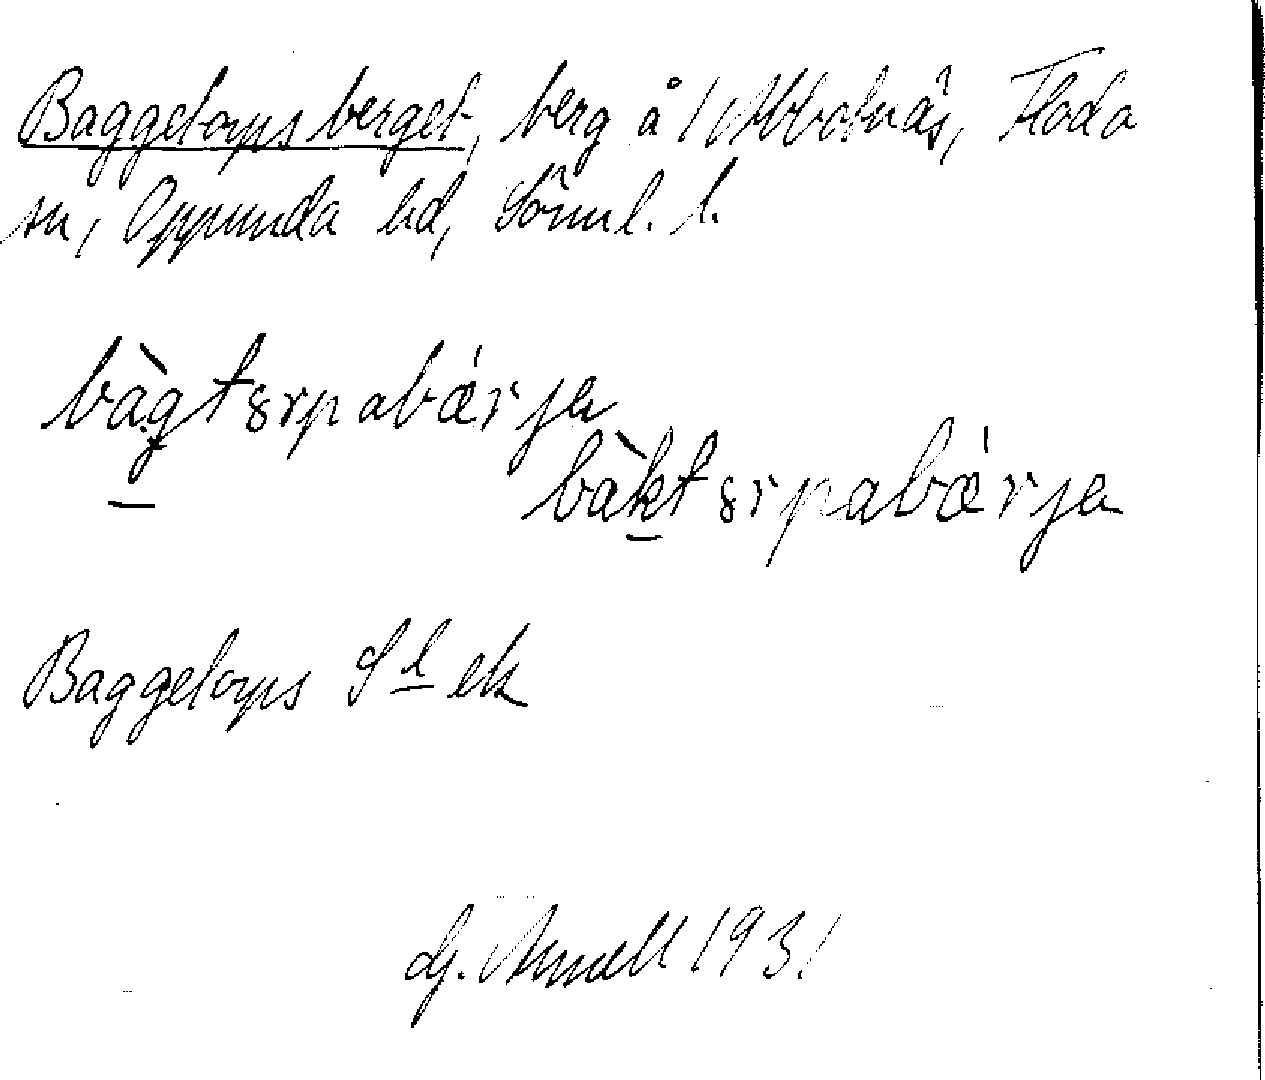 Baggetorpsberget, berg å 1 Abbotnäs, Floda
sn, Oppunda hd, Sörml. l.
bàgtərpabǽrja
bàktərpabǽrja
Baggetorps S l ek
G. Arnell 1931